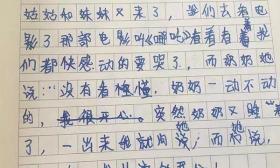 姑姑和妹妹又来了，我们去看电
影了那部电影叫《哪吒》看着看着我
们都快感动的要哭了，而奶奶她
说…没有看懂，奶奶一动不动
的，我很开心。突然奶奶又睡着
了，一出来她就问她；而她说，